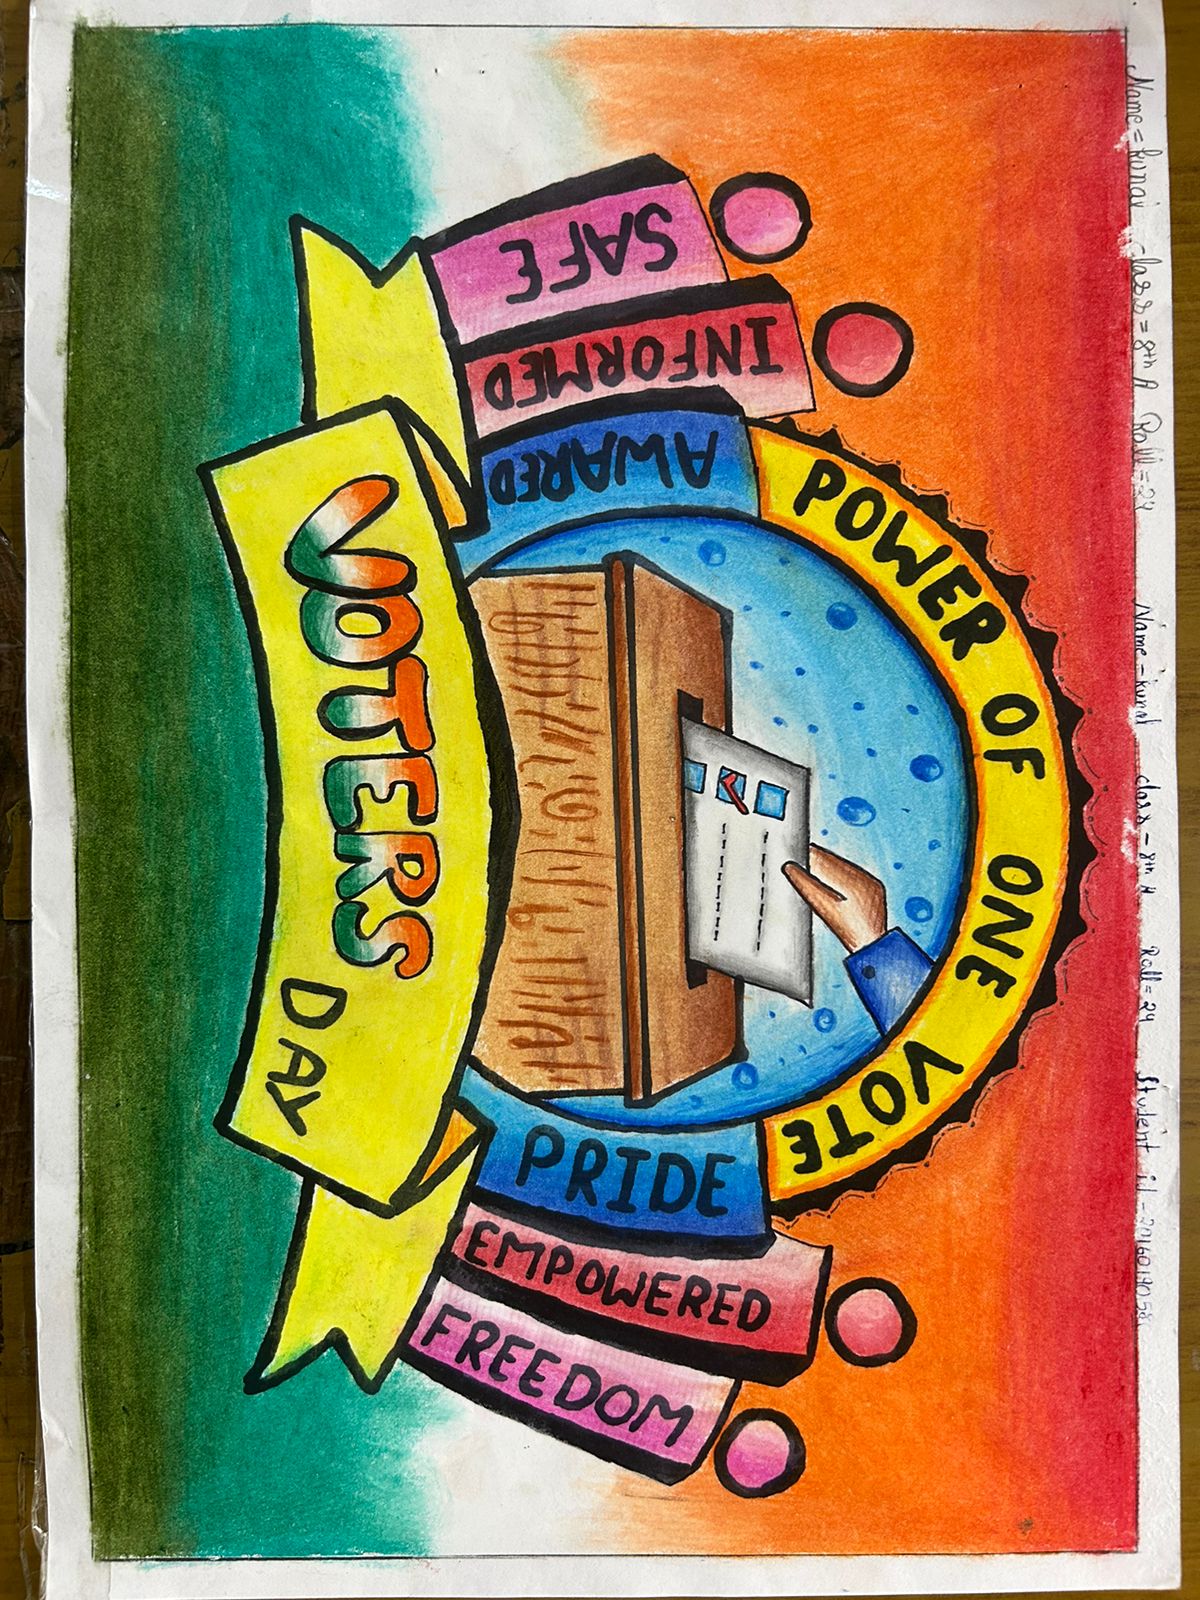 Name = kunal class = 8th A Roll = 24 Name - kunal class - 8th A Roll = 24 Student id - 20160190581
POWER OF ONE VOTE
SAFE
INFORMED
AWARED
PRIDE
EMPOWERED
FREEDOM
VOTERS DAY